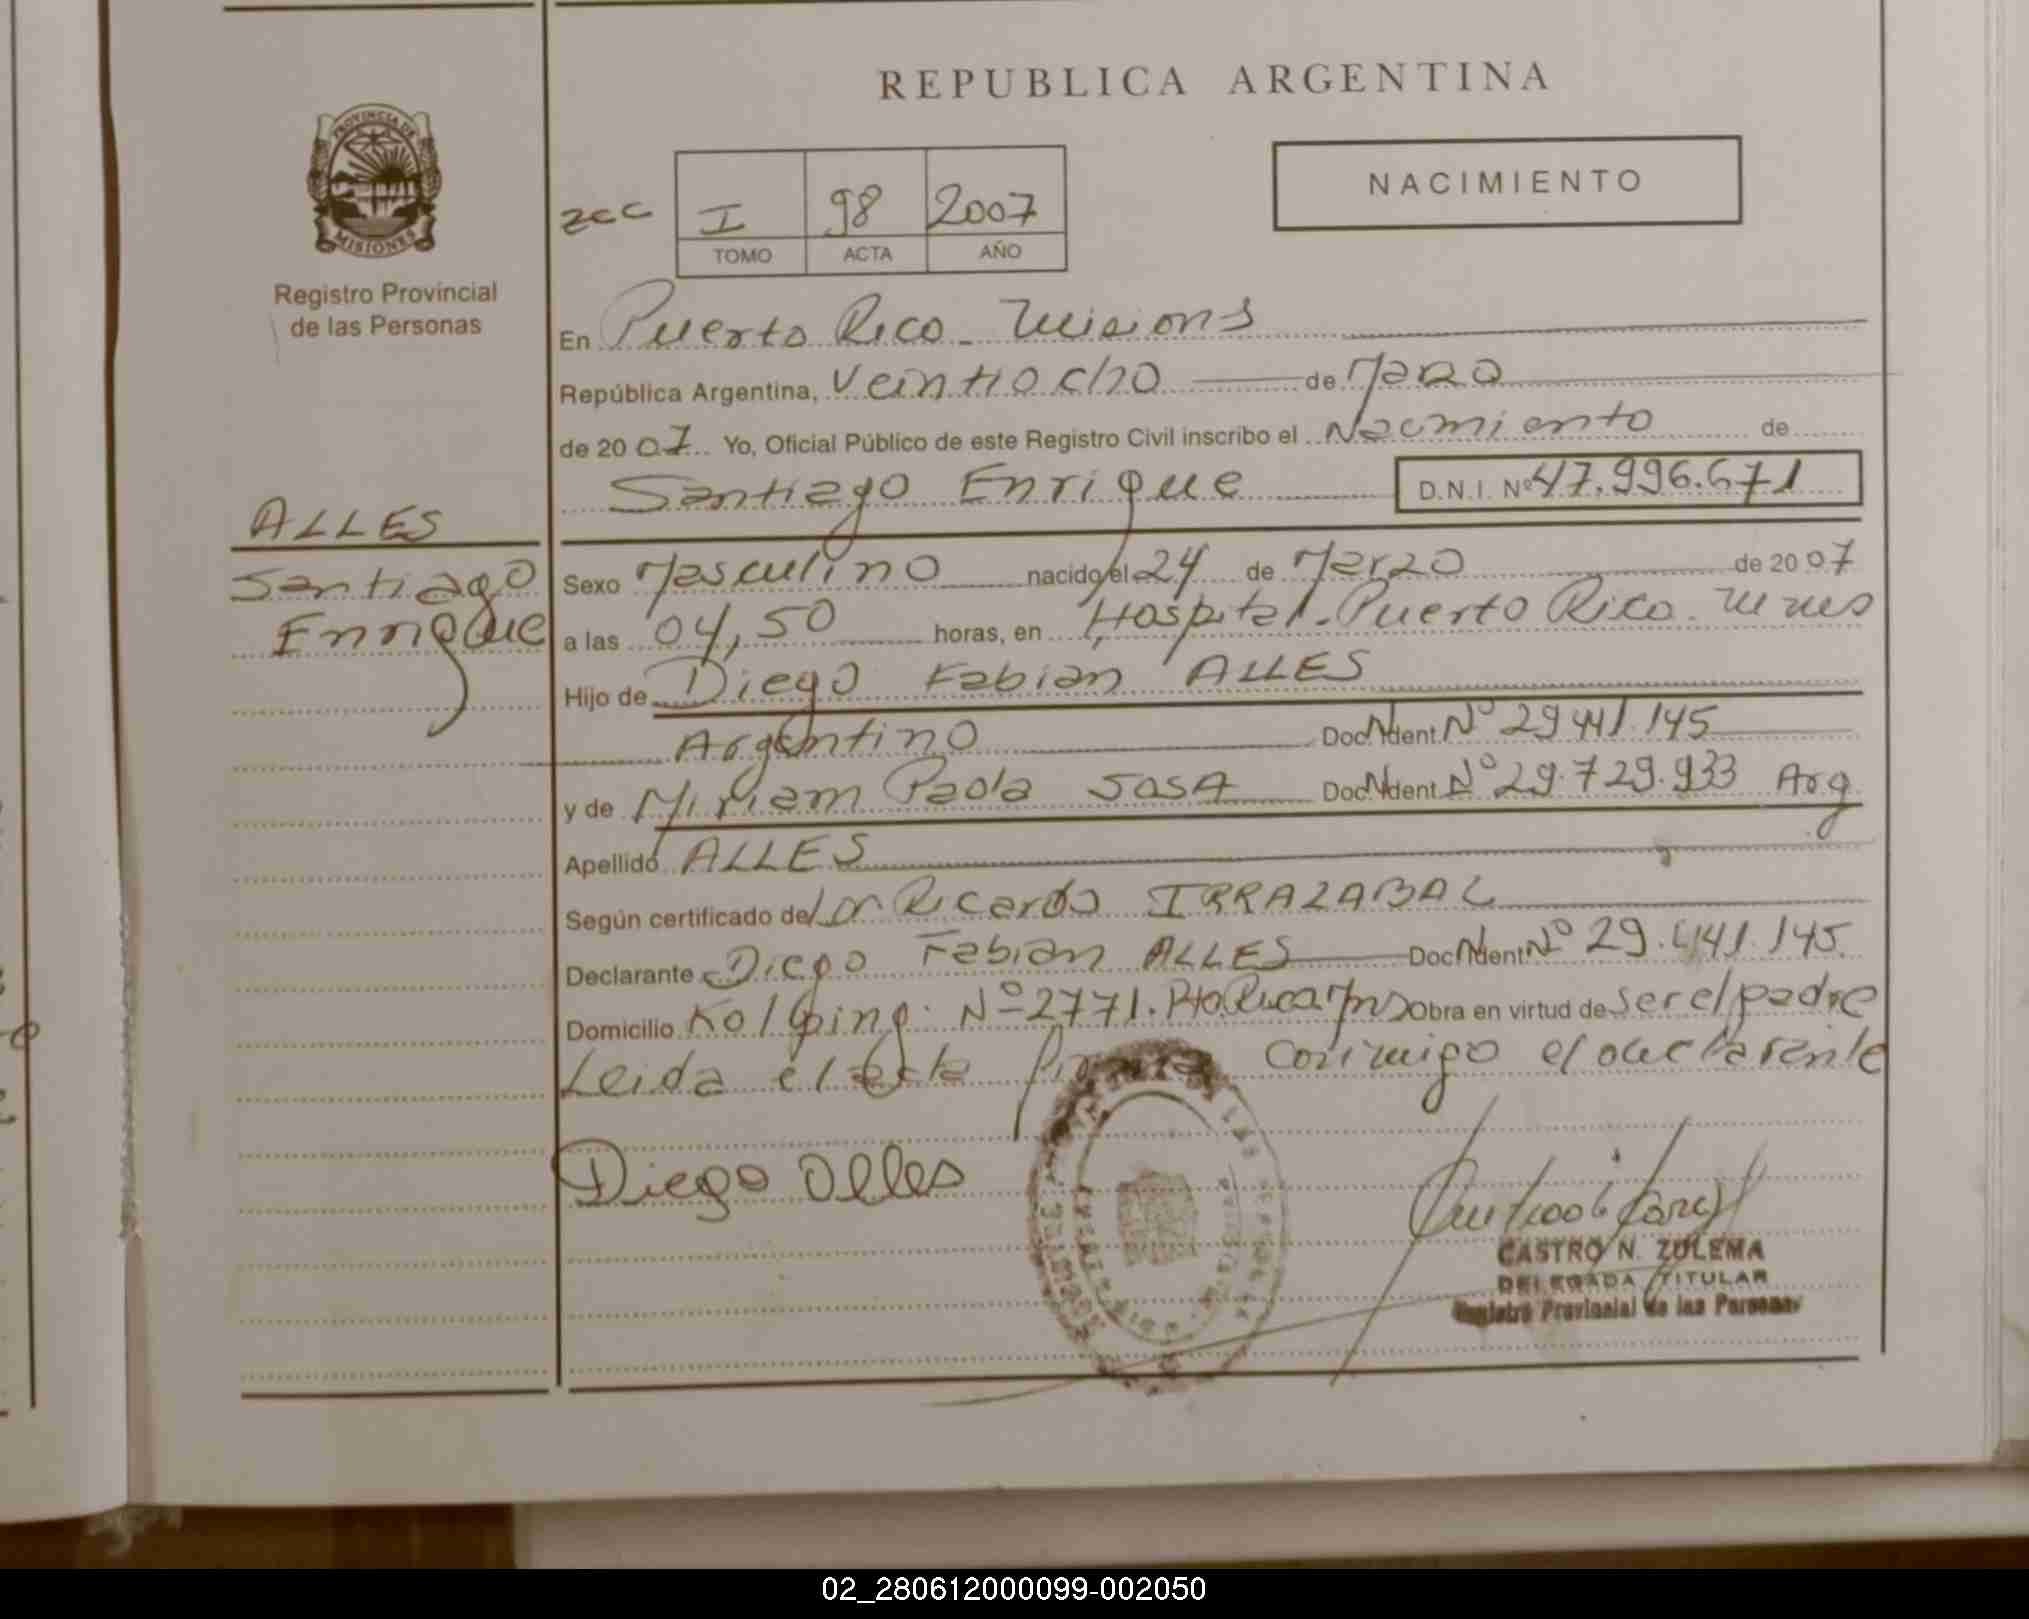 REPUBLICA ARGENTINA
NACIMIENTO
PROVINCIA DE
MISIONES
Registro Provincial
de las Personas
zcc I 98 2007
TOMO ACTA AÑO
En Puerto Rico - Misions
República Argentina, Veintiocho de Marzo
de 2007 Yo, Oficial Público de este Registro Civil inscribo el Nacimiento de
Santiago Enrique D.N.I. Nº 47.996.671
ALLES
Santiago
Enrique
Sexo Masculino nacido el 24 de Marzo de 2007
a las 04,50 horas, en Hospital. Puerto Rico. Mnes
Hijo de Diego Fabian ALLES
Argentino Doc. Ident. Nº 29441.145
y de Miriam Paola SOSA Doc. Ident. Nº 29.729.933 Arg
Apellido ALLES
Según certificado del Dr Ricardo IRRAZABAL
Declarante Diego Fabian ALLES Doc. Ident. Nº 29.441.145
Domicilio Kolping. Nº 2771. Pto Rico Mns Obra en virtud de ser el padre
Leida el acta Firma conimigo el declarante
Diego Alles
CASTRO N. ZULEMA
DELEGADA TITULAR
Registro Provincial de las Personas
02_280612000099-002050